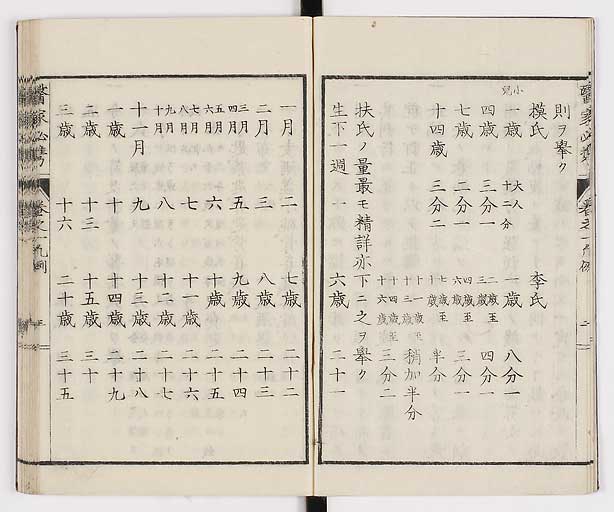 則ヲ擧ク
模氏 李氏
小児 一歳 大人ノ十二分一 一歳 八分一
四歳 三分一 二歳至三歳 四分一
七歳 二分一 四歳至六歳 三分一
十四歳 三分二 七歳至十歳 半分
十一歳至十三歳 稍加半分
十四歳至十六歳 三分二
扶氏ノ量最モ精詳亦下ニ之ヲ擧ク
生下一週 一 六歳 二十一
一月 二 七歳 二十二
二月 三 八歳 二十三
三月四月 五 九歳 二十四
五月六月 六 十歳 二十五
七月八月 七 十一歳 二十六
九月十月 八 十二歳 二十七
十一月 九 十三歳 二十八
一歳 十 十四歳 二十九
二歳 十三 十五歳 三十
三歳 十六 二十歳 三十五
醫家必携 巻之一 凡例